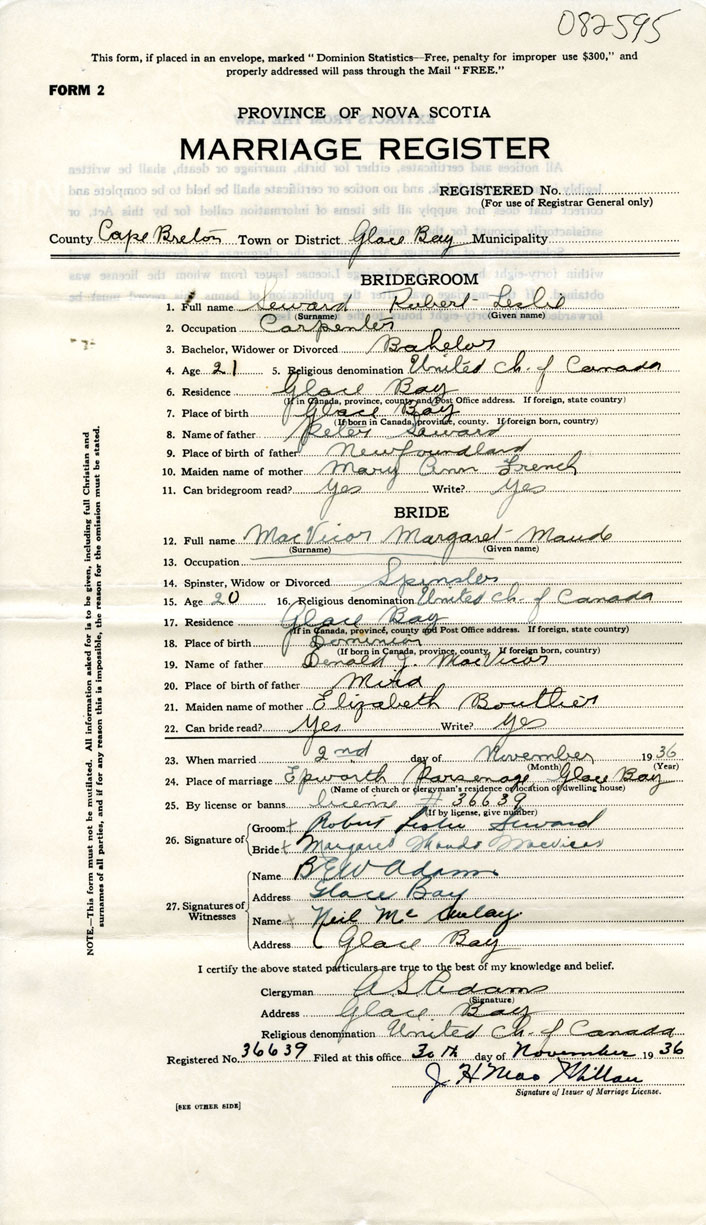 082595
This form, if placed in an envelope, marked "Dominion Statistics—Free, penalty for improper use $300," and
properly addressed will pass through the Mail "FREE."
FORM 2
PROVINCE OF NOVA SCOTIA
MARRIAGE REGISTER
REGISTERED No.
(For use of Registrar General only)
County Cape Breton Town or District Glace Bay Municipality
BRIDEGROOM
1. Full name Seward Robert Leslie
(Surname) (Given name)
2. Occupation Carpenter
3. Bachelor, Widower or Divorced Bahelor
4. Age 21 5. Religious denomination United Ch. of Canada
6. Residence Glace Bay
(If in Canada, province, county and Post Office address. If foreign, state country)
7. Place of birth Glace Bay
(If born in Canada, province, county. If foreign born, country)
8. Name of father Peter Seward
9. Place of birth of father Newfoundland
10. Maiden name of mother Mary Ann French
11. Can bridegroom read? Yes Write? Yes
BRIDE
12. Full name MacVicar Margaret Maude
(Surname) (Given name)
13. Occupation
14. Spinster, Widow or Divorced Spinster
15. Age 20 16. Religious denomination United Ch. of Canada
17. Residence Glace Bay
(If in Canada, province, county and Post Office address. If foreign, state country)
18. Place of birth Dominion
(If born in Canada, province, county. If foreign born, country)
19. Name of father Donald J. MacVicar
20. Place of birth of father Mira
21. Maiden name of mother Elizabeth Boutlier
22. Can bride read? Yes Write? Yes
23. When married 2nd day of November 1936
(Month) (Year)
24. Place of marriage Epworth Parsonage Glace Bay
(Name of church or clergyman's residence or location of dwelling house)
25. By license or banns license # 36639
(If by license, give number)
26. Signature of Groom x Robert Leslie Seward
Bride x Margaret Maude MacVicar
27. Signatures of Witnesses Name B E W Adams
Address Glace Bay
Name x Neil McAulay
Address Glace Bay
I certify the above stated particulars are true to the best of my knowledge and belief.
Clergyman A S Adams
(Signature)
Address Glace Bay
Religious denomination United Ch. of Canada
Registered No. 36639 Filed at this office 30th day of November 1936
J H MacMillan
Signature of Issuer of Marriage License.
[SEE OTHER SIDE]
NOTE.—This form must not be mutilated. All information asked for is to be given, including full Christian and
surnames of all parties, and if for any reason this is impossible, the reason for the omission must be stated.